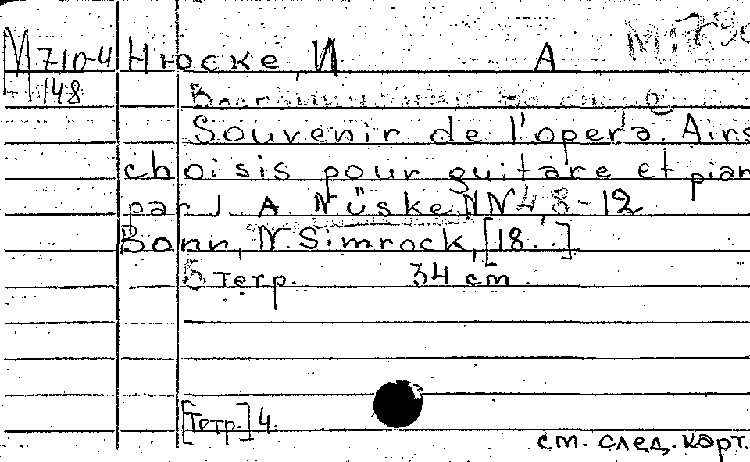 М 710-4 Нюске, И А
148
Souvenir de l'opera. Airs
choisis pour guitare et pian
par J. A Nüske NN 4, 8-12
Bonn, N. Simrock, [18. .]
5 тетр. 34 cm.
[Тетр.] 4.
см. след. карт.